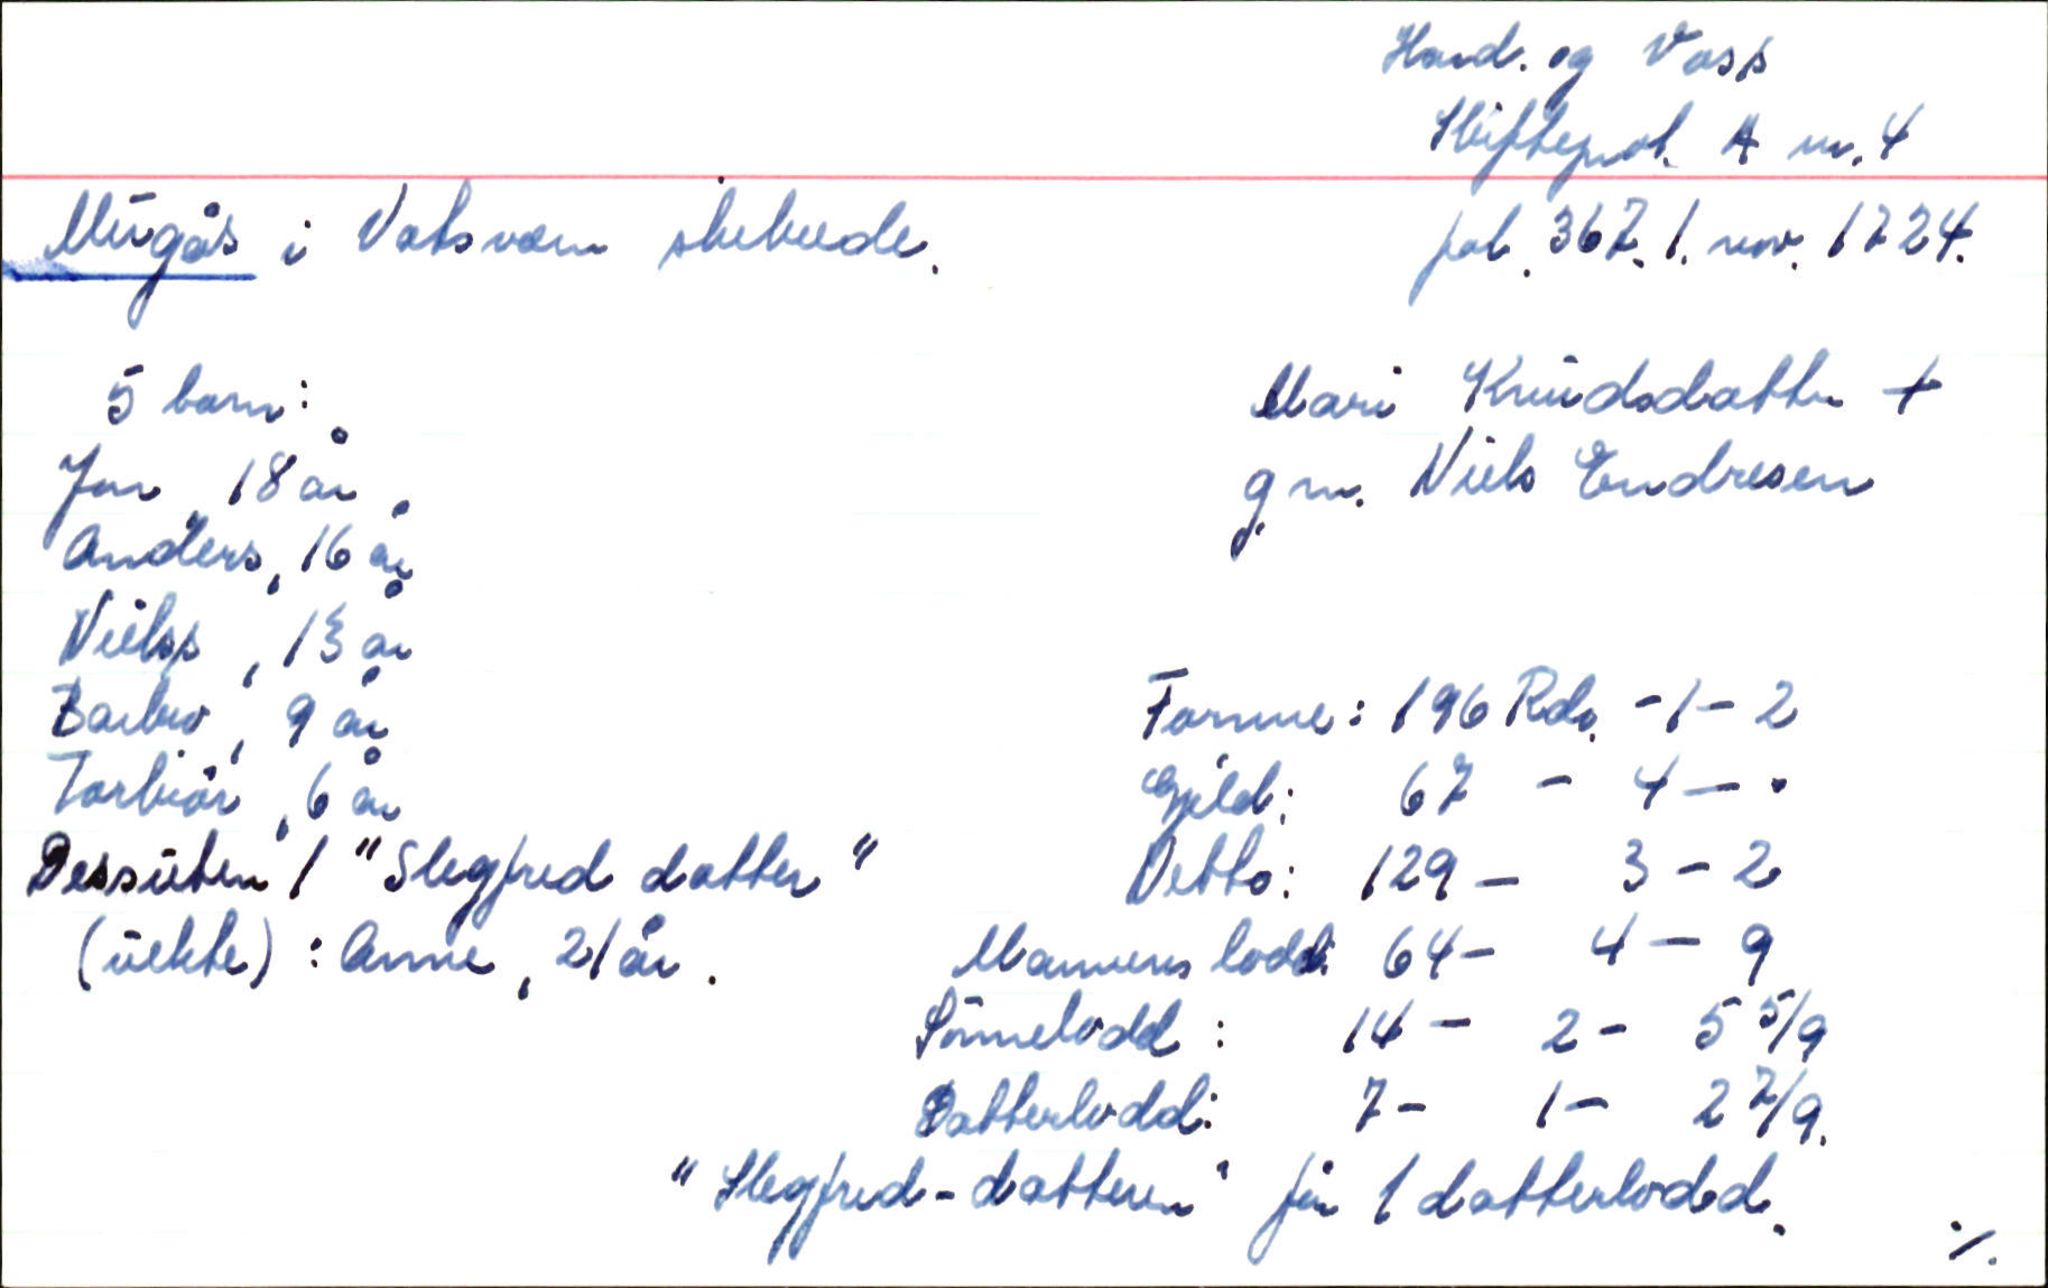 Hard. og Voss
Skifteprot. A nr. 4
Mügås i Vatsværn skibrede.
fol. 367. 1. nov. 1724.
5 barn:
Jon 18 år
Anders, 16 år
Nielss, 13 år
Barbro, 9 år
Torbiör, 6 år
Dessüten 1 "Slegfred datter"
(üekte): Anne, 21 år.
Mari Knüdsdatter +
g. m. Niels Endresen
Formue: 196 Rdr. - 1 - 2
Gjeld: 67 - 4 - .
Netto: 129 - 3 - 2
Mannens lodd: 64 - 4 - 9
Sönnelodd: 14 - 2 - 5 5/9
Datterlodd: 7 - 1 - 2 7/9.
"Slegfred-datteren" får 1 datterlodd.
./.